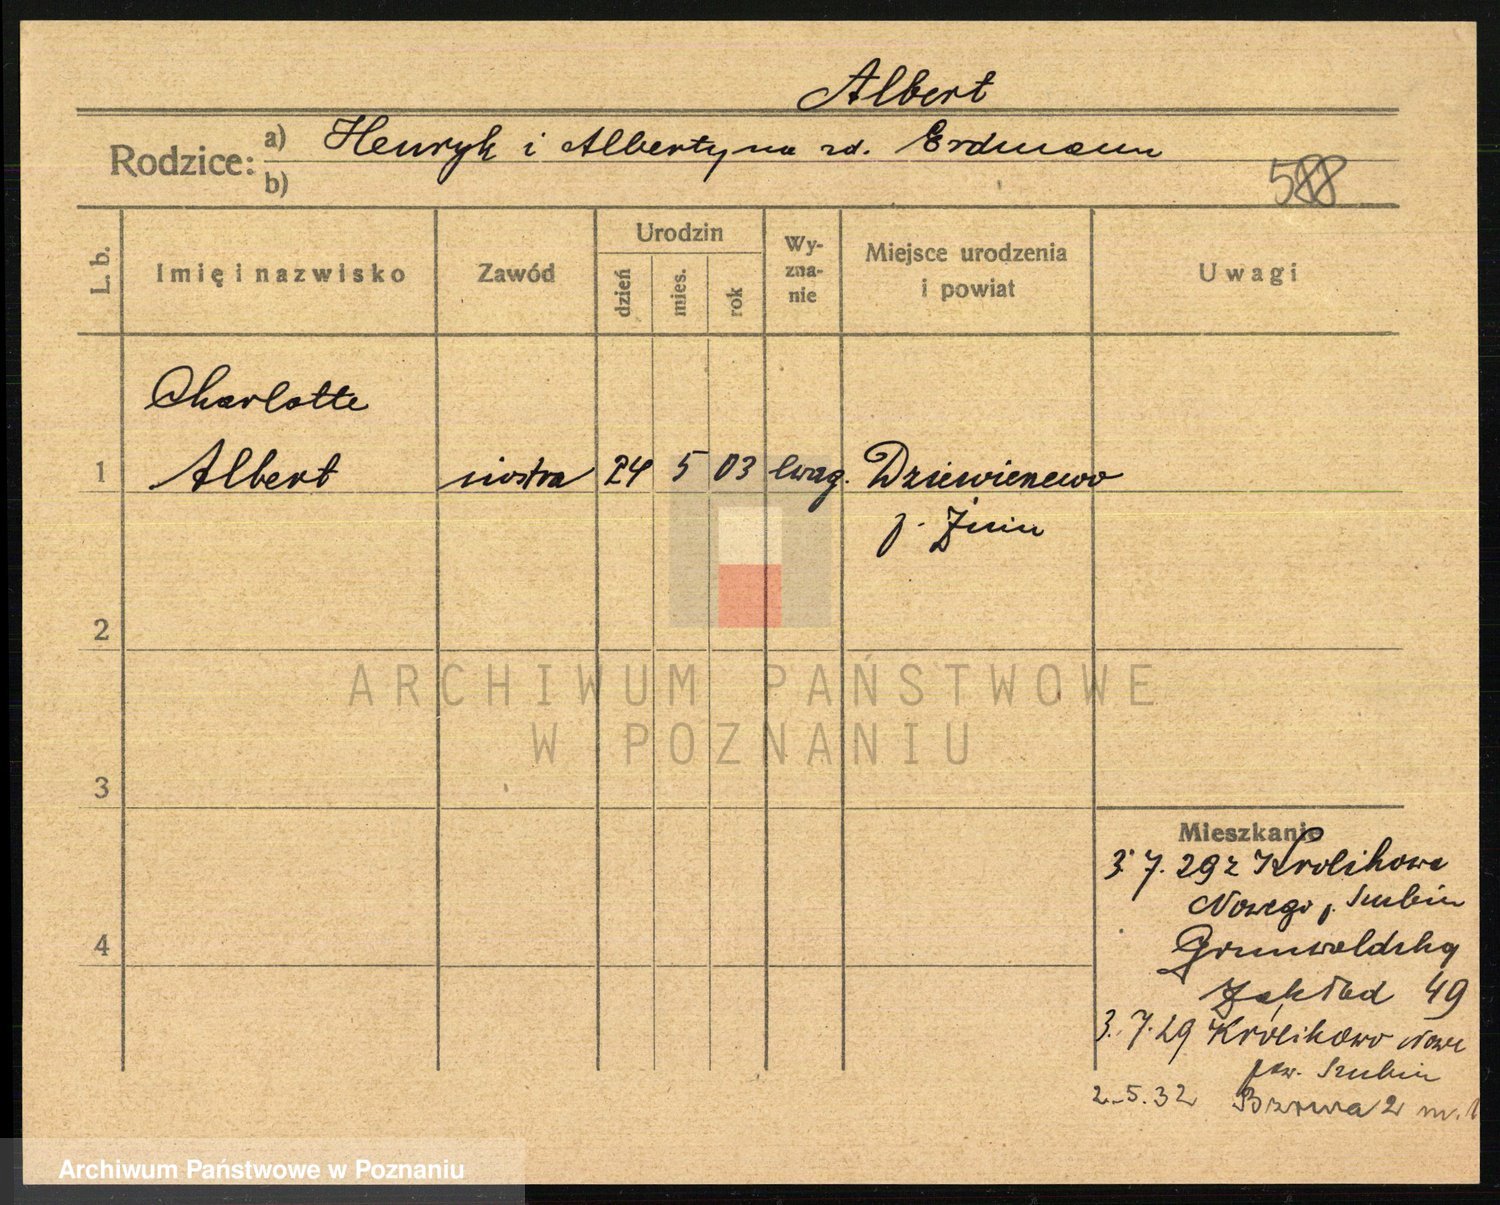 Albert
Rodzice:
a) Henryk i Albertyna zd. Erdmann
b)
588
L. b.
Imię i nazwisko
Zawód
Urodzin
dzień
mies.
rok
Wy-
zna-
nie
Miejsce urodzenia
i powiat
Uwagi
Charlotte
1 Albert siostra 24 5 03 ewag. Dziewierzewo
p. Żnin
2
ARCHIWUM PAŃSTWOWE
W POZNANIU
3
Mieszkanie
3.7.29 z Królikowa
Nowego p. Szubin
Grunwaldzka
Zakład 49
3.7.29 Królikowo Nowe
pow. Szubin
4
2.5.32 2 m. 1
Archiwum Państwowe w Poznaniu